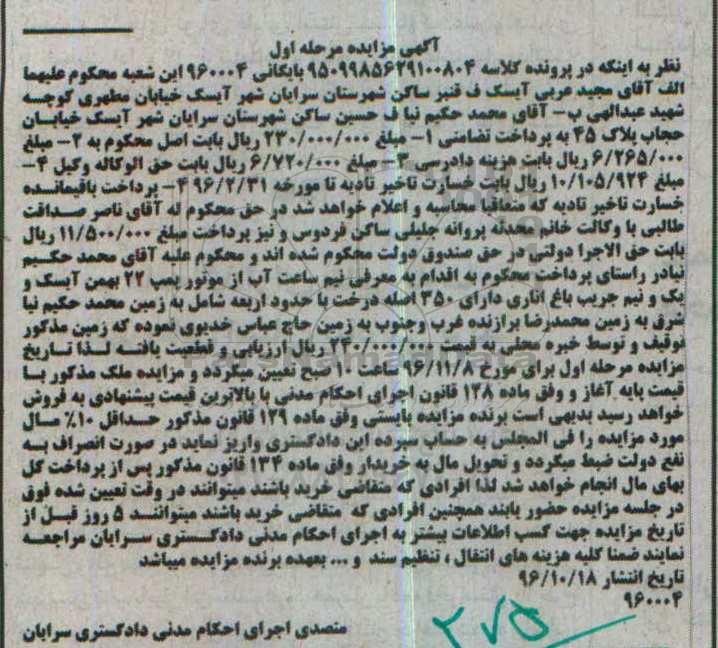 آگهی مزایده مرحله اول
نظر به اینکه در پرونده کلاسه ۹۵۰۹۹۸۵۶۲۹۱۰۰۸۰۴ بایگانی ۹۶۰۰۰۴ این شعبه محکوم علیهما
الف آقای مجید عربی آیسک ف قنبر ساکن شهرستان سرایان شهر آیسک خیابان مطهری کوچسه
شهید عبدالهی ب- آقای محمد حکیم نیا ف حسین ساکن شهرستان سرایان شهر آیسک خیابان
حجاب پلاک ۴۵ به پرداخت تضامنی ۱- مبلغ ۲۳۰/۰۰۰/۰۰۰ ریال بابت اصل محکوم به ۲- مبلغ
۶/۲۶۵/۰۰۰ ریال بابت هزینه دادرسی ۳- مبلغ ۶/۷۲۰/۰۰۰ ریال بابت حق الوکاله وکیل ۴-
مبلغ ۱۰/۱۰۵/۹۲۴ ریال بابت خسارت تاخیر تادیه تا مورخه ۹۶/۲/۳۱ ۴- پرداخت باقیمانده
خسارت تاخیر تادیه که متعاقبا محاسبه و اعلام خواهد شد در حق محکوم له آقای ناصر صداقت
طالبی با وکالت خانم محدثه پروانه جلیلی ساکن فردوس و نیز پرداخت مبلغ ۱۱/۵۰۰/۰۰۰ ریال
بابت حق الاجرا دولتی در حق صندوق دولت محکوم شده اند و محکوم علیه آقای محمد حکیم
نیادر راستای پرداخت محکوم به اقدام به معرفی نیم ساعت آب از موتور پمپ ۲۲ بهمن آیسک و
یک و نیم جریب باغ اناری دارای ۳۵۰ اصله درخت با حدود اربعه شامل به زمین محمد حکیم نیا
شرق به زمین محمدرضا برازنده غرب وجنوب به زمین حاج عباس خدیوی نموده که زمین مذکور
توقیف و توسط خبره محلی به قیمت ۲۴۰/۰۰۰/۰۰۰ ریال ارزیابی و قطعیت یافته لذا تاریخ
مزایده مرحله اول برای مورخ ۹۶/۱۱/۸ ساعت ۱۰ صبح تعیین میگردد و مزایده ملک مذکور با
قیمت پایه آغاز و وفق ماده ۱۲۸ قانون اجرای احکام مدنی با بالاترین قیمت پیشنهادی به فروش
خواهد رسید بدیهی است برنده مزایده بایستی وفق ماده ۱۲۹ قانون مذکور حداقل ۱۰٪ سال
مورد مزایده را فی المجلس به حساب سپرده این دادگستری واریز نماید در صورت انصراف به
نفع دولت ضبط میگردد و تحویل مال به خریدار وفق ماده ۱۳۴ قانون مذکور پس از پرداخت کل
بهای مال انجام خواهد شد لذا افرادی که متقاضی خرید باشند میتوانند در وقت تعیین شده فوق
در جلسه مزایده حضور یابند همچنین افرادی که متقاضی خرید باشند میتوانند ۵ روز قبل از
تاریخ مزایده جهت کسب اطلاعات بیشتر به اجرای احکام مدنی دادگستری سرایان مراجعه
نمایند ضمنا کلیه هزینه های انتقال ، تنظیم سند و ... بعهده برنده مزایده میباشد
تاریخ انتشار ۹۶/۱۰/۱۸
۹۶۰۰۰۴
متصدی اجرای احکام مدنی دادگستری سرایان
۲۷۵